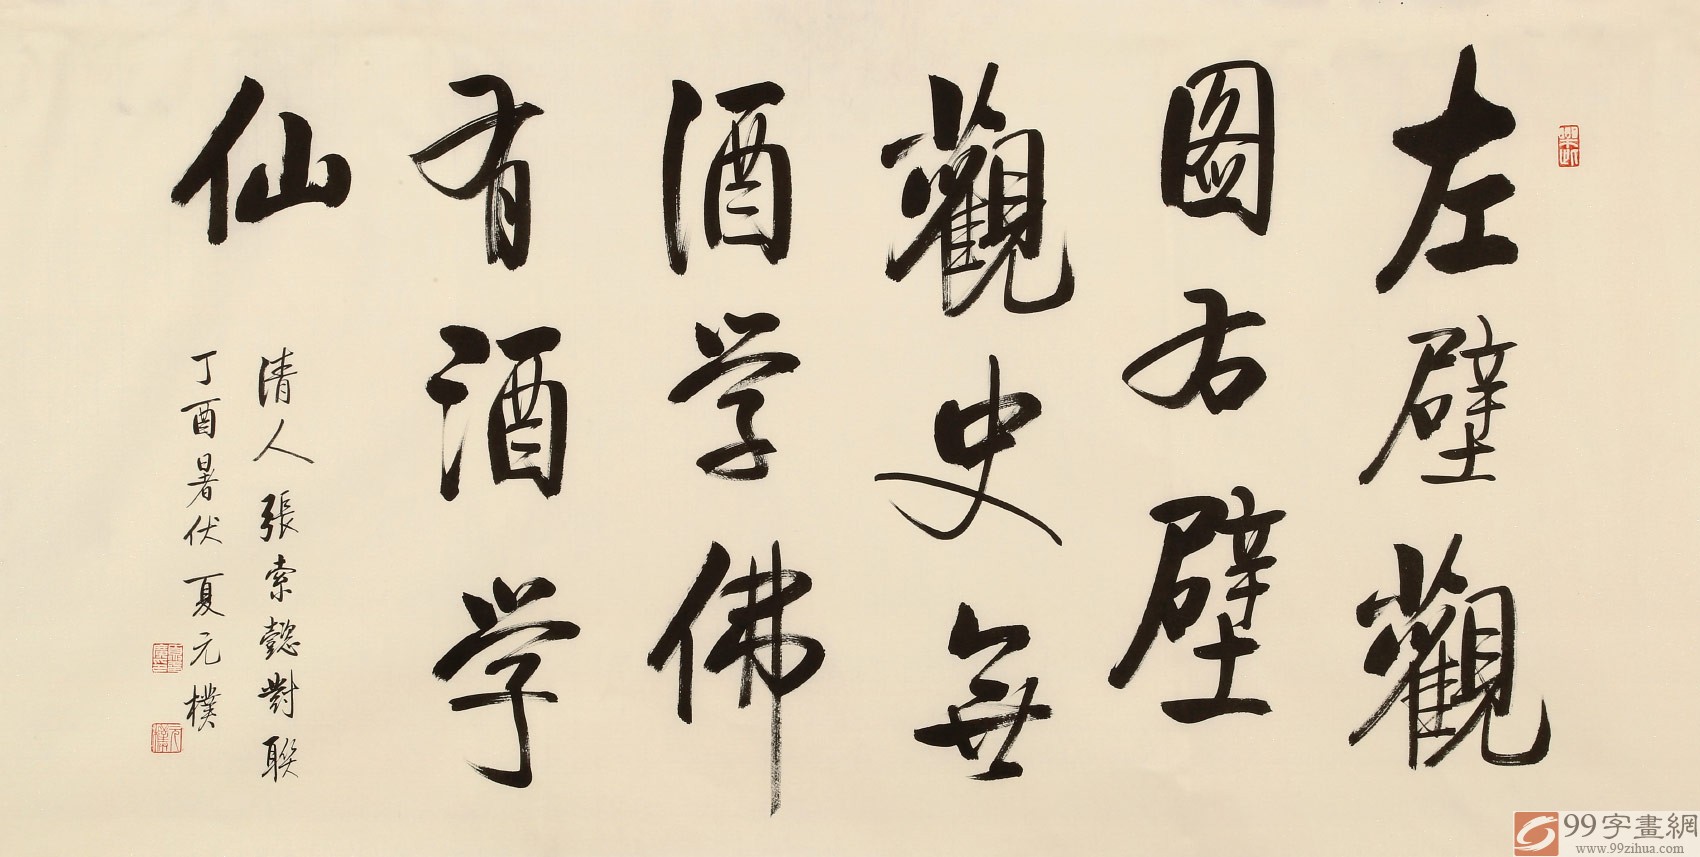 左壁觀
图右壁
觀史無
酒学佛
有酒学
仙
清人張索懿對聯
丁酉暑伏夏元樸
99字畫網
www.99zihua.com